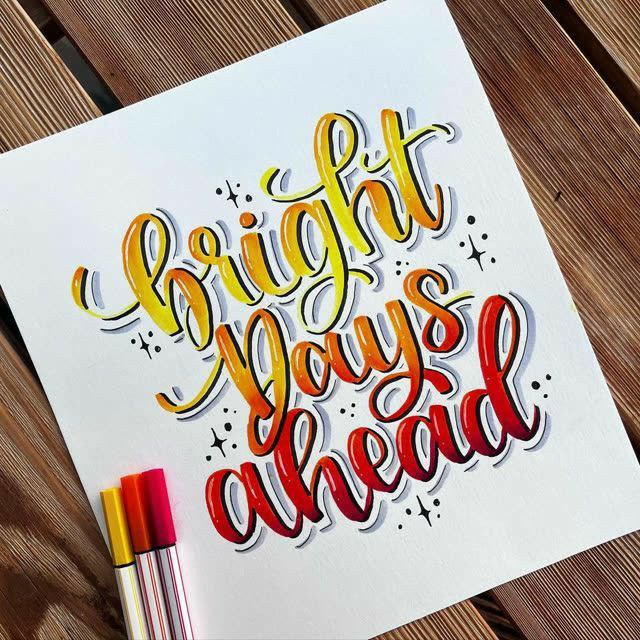 bright
Days
ahead